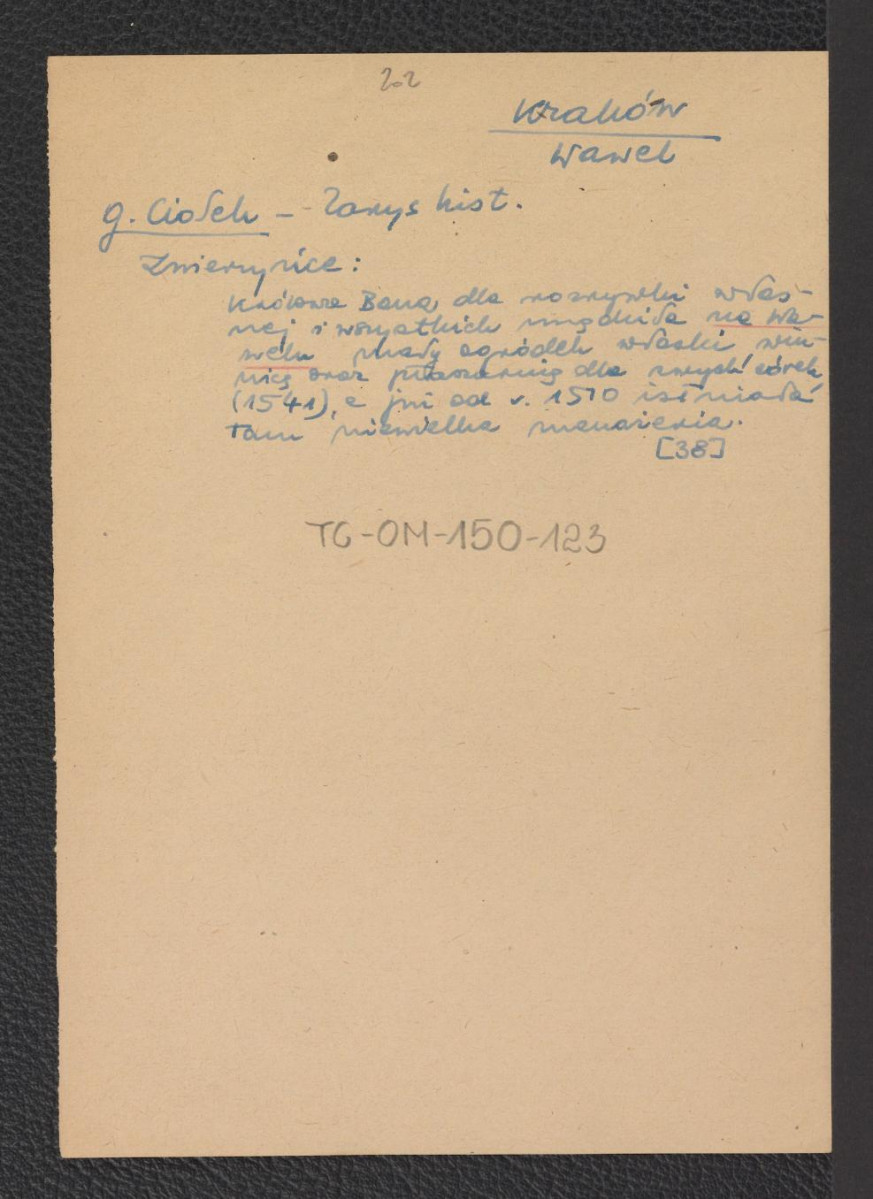 202
Kraków
Wawel
G. Ciołek - Zarys hist.
Zwierzyńce:
Królowa Bona dla rozrywki włas-
nej i wszystkich urządziła na Wa-
welu mały ogródek włoski win-
nicę oraz ptaszarnię dla swych córek
(1541), a już od r. 1510 istniała
tam niewielka menażeria.
[38]
TG-OM-150-123